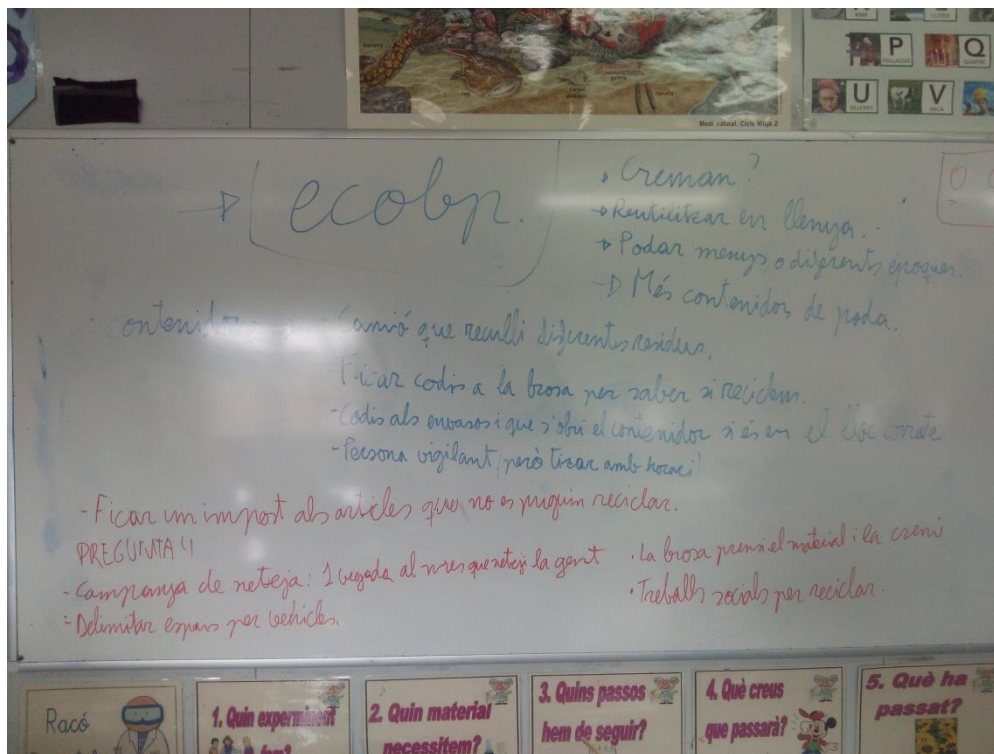 Medi natural. Cicle Mitjà 2
P
PALLASSO
Q
QUATRE
U
ULLERES
V
VACA
→ ecobp.
• Creman?
→ Reutilitzar en llenya.
→ Podar menys o diferents èpoques.
→ Més contenidor de poda.
contenidors
- Camió que reculli diferents residus.
Ficar codis a la brosa per saber si reciclem.
- Codis als envasos i que s'obri el contenidor si és en el lloc correcte
- Persona vigilant, però tirar amb horari
- Ficar un impost als articles que no es puguin reciclar.
PREGUNTA
- Campanya de neteja: 1 vegada al mes que netegi la gent
- Delimitar espais per vehicles.
• La brosa premsi el material i la cremi
• Treballs socials per reciclar.
Racó
1. Quin experiment
fem?
2. Quin material
necessitem?
3. Quins passos
hem de seguir?
4. Què creus
que passarà?
5. Què ha
passat?